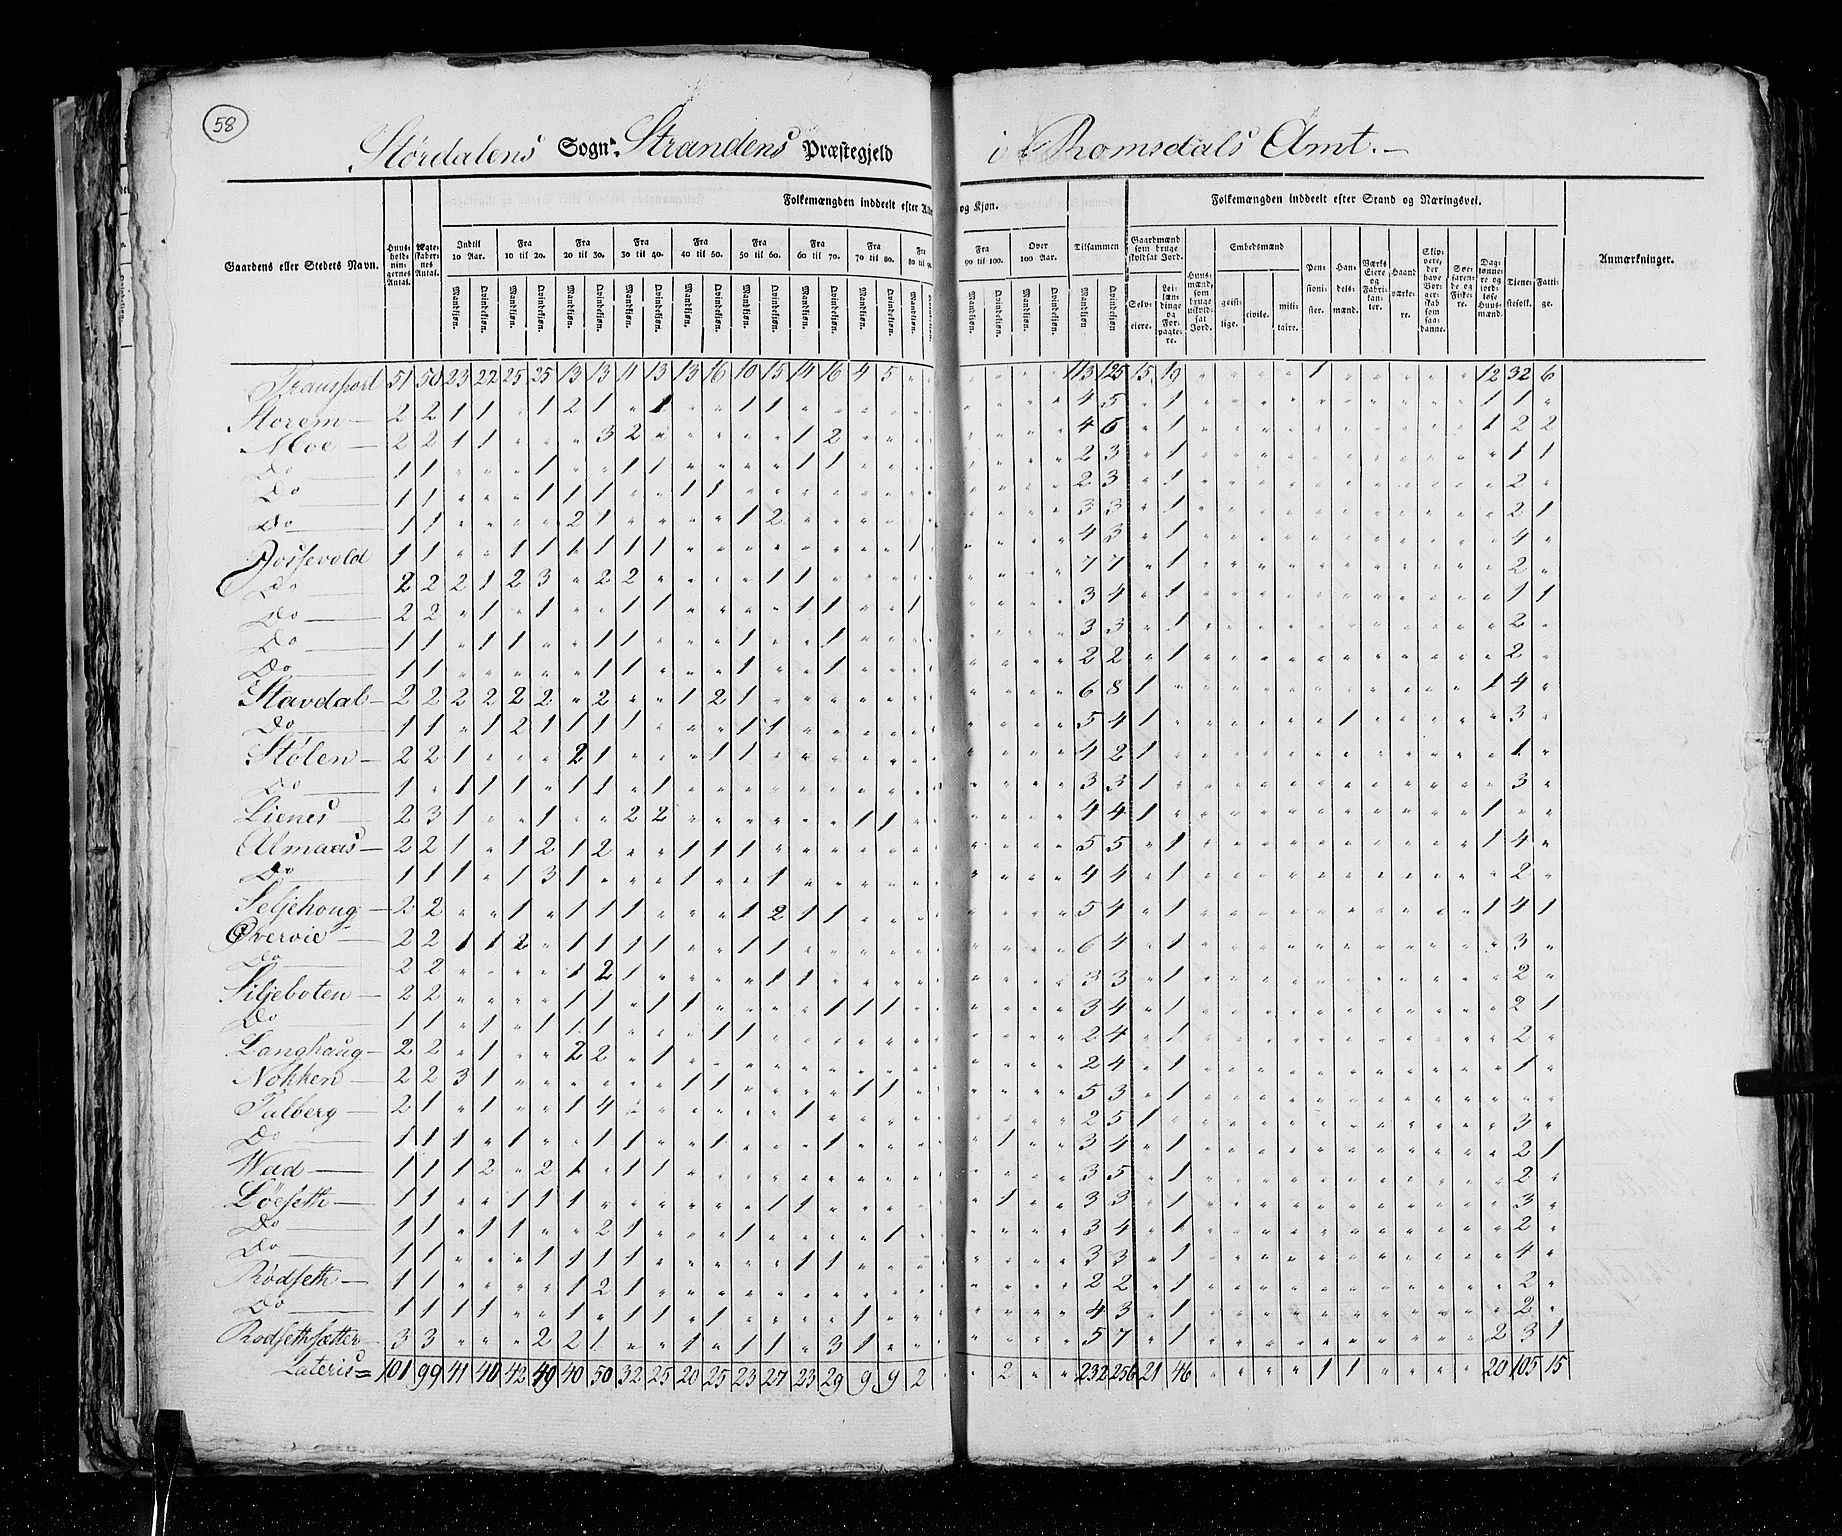 58
Stordalens Sogn. Strandens Præstegjeld i Romsdals Amt.
Gaardens eller Stedets Navn.
Huusholdningernes Antal.
Ægteskabernes Antal.
Folkemængden inddeelt efter Alder og Kjøn.
Indtil 10 Aar. Fra 10 til 20. Fra 20 til 30. Fra 30 til 40. Fra 40 til 50. Fra 50 til 60. Fra 60 til 70. Fra 70 til 80. Fra 80 til 90. Fra 90 til 100. Over 100 Aar. Tilsammen
Mandkjøn. Qvindekjøn.
Folkemængden inddeelt efter Stand og Næringsvei.
Gaardmænd som bruge skyldsat Jord.
Selveiere. Leilændinge og Forpagtere.
Huusmænd, som bruge uskyldsat Jord.
Embedsmænd
geistlige. civile. militaire.
Pensionister. Handelsmænd. Værks Eiere og Fabrikanter. Haandværkere.
Søefarende og Fiskere. Daglønnere og jordløse Huusmænd. Tjenestefolk. Fattige.
Anmærkninger.
Transport 51 50 23 22 25 25 13 13 11 13 13 16 10 15 14 16 4 5 113 125 15 19 1 12 32 6
Storem 2 2 1 1 1 2 1 1 1 1 4 5 1 1 1
Moe 2 2 1 1 3 2 1 2 4 6 1 1 2 2
Do 1 1 1 1 1 1 1 2 3 1 1 1
Do 1 1 1 1 1 1 1 2 3 1 2
Do 1 1 2 1 1 2 3 3 1 2 1
1 1 1 1 1 1 1 1 1 4 3 1 4
Do 2 2 2 1 2 3 2 2 1 1 7 7 1 2
Do 2 2 1 1 1 1 1 1 1 3 4 1 1 1
Do 1 1 1 1 1 1 1 1 3 3 1 2
Do 1 1 1 1 1 1 2 2 1 2
Stavdal 2 2 2 2 2 2 2 1 2 1 6 8 1 1 4
Do 1 1 1 2 1 1 1 1 1 1 5 4 1 1 3
Stølen 2 2 1 2 1 1 1 4 2 1 1
Do 1 1 1 1 1 1 1 3 3 1 3
Lienes 2 3 1 1 2 2 1 1 4 4 1 1
Almaas 2 2 1 1 2 1 2 1 1 1 5 5 1 1 4
Do 1 1 1 1 3 1 1 1 4 4 1 2
Seljehoug 2 2 1 1 1 1 1 2 1 1 5 4 1 1 4 1
Øvervie 2 2 1 1 2 1 1 1 1 1 1 6 4 1 3
Do 2 2 1 2 1 1 1 3 3 1 2
Siljeboten 2 2 1 1 1 1 1 1 1 3 4 1 2 1
Do 1 1 1 1 1 1 1 1 2 4 1 2
Langhaug 2 2 1 2 2 1 2 4 1 1
Nokken 2 2 3 1 1 1 1 1 5 3 1
Talberg 2 1 1 1 4 1 2 5 1 3
Do 1 1 1 1 1 1 1 1 1 3 4 1 2 1
Wad 1 1 1 2 2 1 1 1 3 5 1 2
Löeseth 1 1 1 1 1 1 1 1 3 3 1 3
Do 1 1 1 1 2 1 1 1 3 4 1 2
Do 1 1 1 1 1 1 1 1 3 3 1 4
Rödseth 1 1 1 2 1 2 2 1 2
Do 1 1 1 1 1 1 1 1 1 4 3 1 2
Rodsethsætter 3 3 2 2 1 1 1 1 3 1 5 7 1 2 3 1
Lateris = 101 99 41 40 42 49 40 50 32 25 20 25 23 27 23 29 9 9 2 2 232 256 21 46 1 1 20 105 15